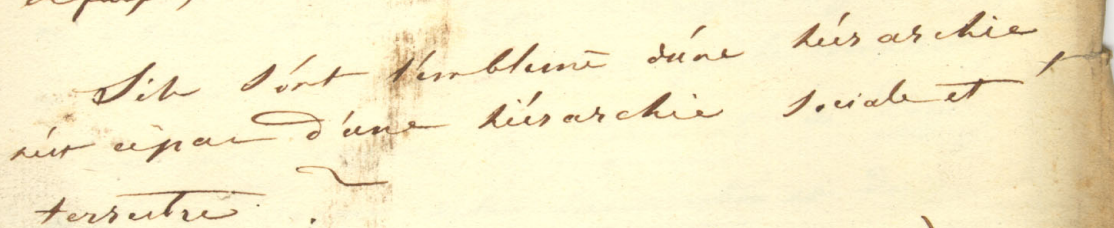 S'ils sont l'emblême d'une hiérarchie,
n'est ce pas d'une hiérarchie sociale et
terrestre .